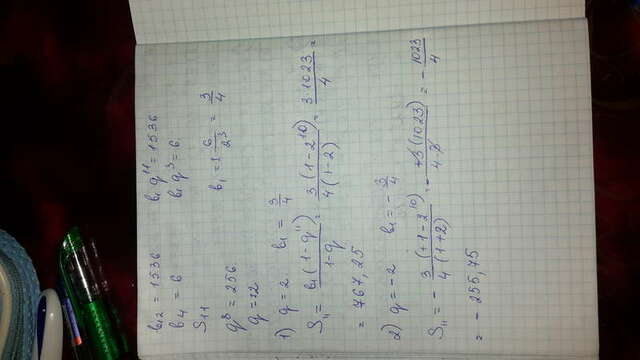 b₁₂ = 1536   b₁q¹¹ = 1536
b₄ = 6   b₁q³ = 6
S₁₁
q⁸ = 256   b₁ = ± 6/2³ = 3/4
q = ±2
1) q = 2   b₁ = 3/4
S₁₁ = b₁(1-q¹¹)/1-q = 3(1-2¹⁰)/4(1-2) = 3·1023/4 =
= 767,25
2) q = -2   b₁ = -3/4
S₁₁ = - 3(+1-2¹⁰)/4(1+2) = - +3(1023)/4·3 = - 1023/4
= - 255,75